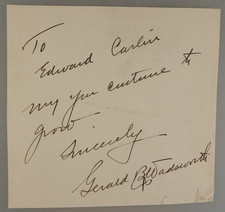 To
Edward Carlin
may you continue to
grow
Sincerely
Gerald B Wadsworth